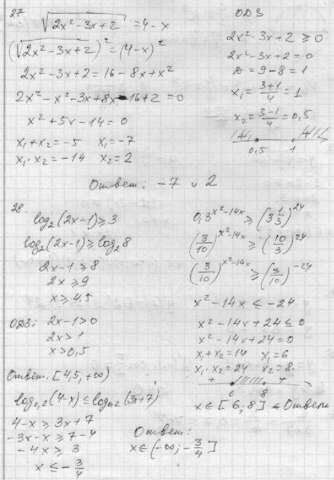 27
√(2x²-3x+2) = 4-x
(√(2x²-3x+2))² = (4-x)²
2x²-3x+2 = 16-8x+x²
2x²-x²-3x+8x-16+2=0
x²+5x-14=0
x₁+x₂=-5 x₁=-7
x₁·x₂=-14 x₂=2
ОДЗ
2x²-3x+2 ≥ 0
2x²-3x+2=0
D=9-8=1
x₁=(3+1)/4=1
x₂=(3-1)/4=0,5
0,5 1
Ответ: -7 и 2
28.
log₂(2x-1)≥3
log₂(2x-1)≥log₂8
2x-1≥8
2x≥9
x≥4,5
ОДЗ: 2x-1>0
2x>1
x>0,5
Ответ. [4,5, +∞)
log₀,₂(4-x)≤log₀,₂(3x+7)
4-x ≥ 3x+7
-3x-x ≥ 7-4
-4x ≥ 3
x ≤ -3/4
Ответ:
x∈(-∞; -3/4]
0,3^(x²-14x) ≥ (3 1/3)^24
(3/10)^(x²-14x) ≥ (10/3)^24
(3/10)^(x²-14x) ≥ (3/10)^-24
x²-14x ≤ -24
x²-14x+24 ≤ 0
x²-14x+24=0
x₁+x₂=14 x₁=6
x₁·x₂=24 x₂=8.
+ - +
6 8
x∈[6,8] ← Ответ